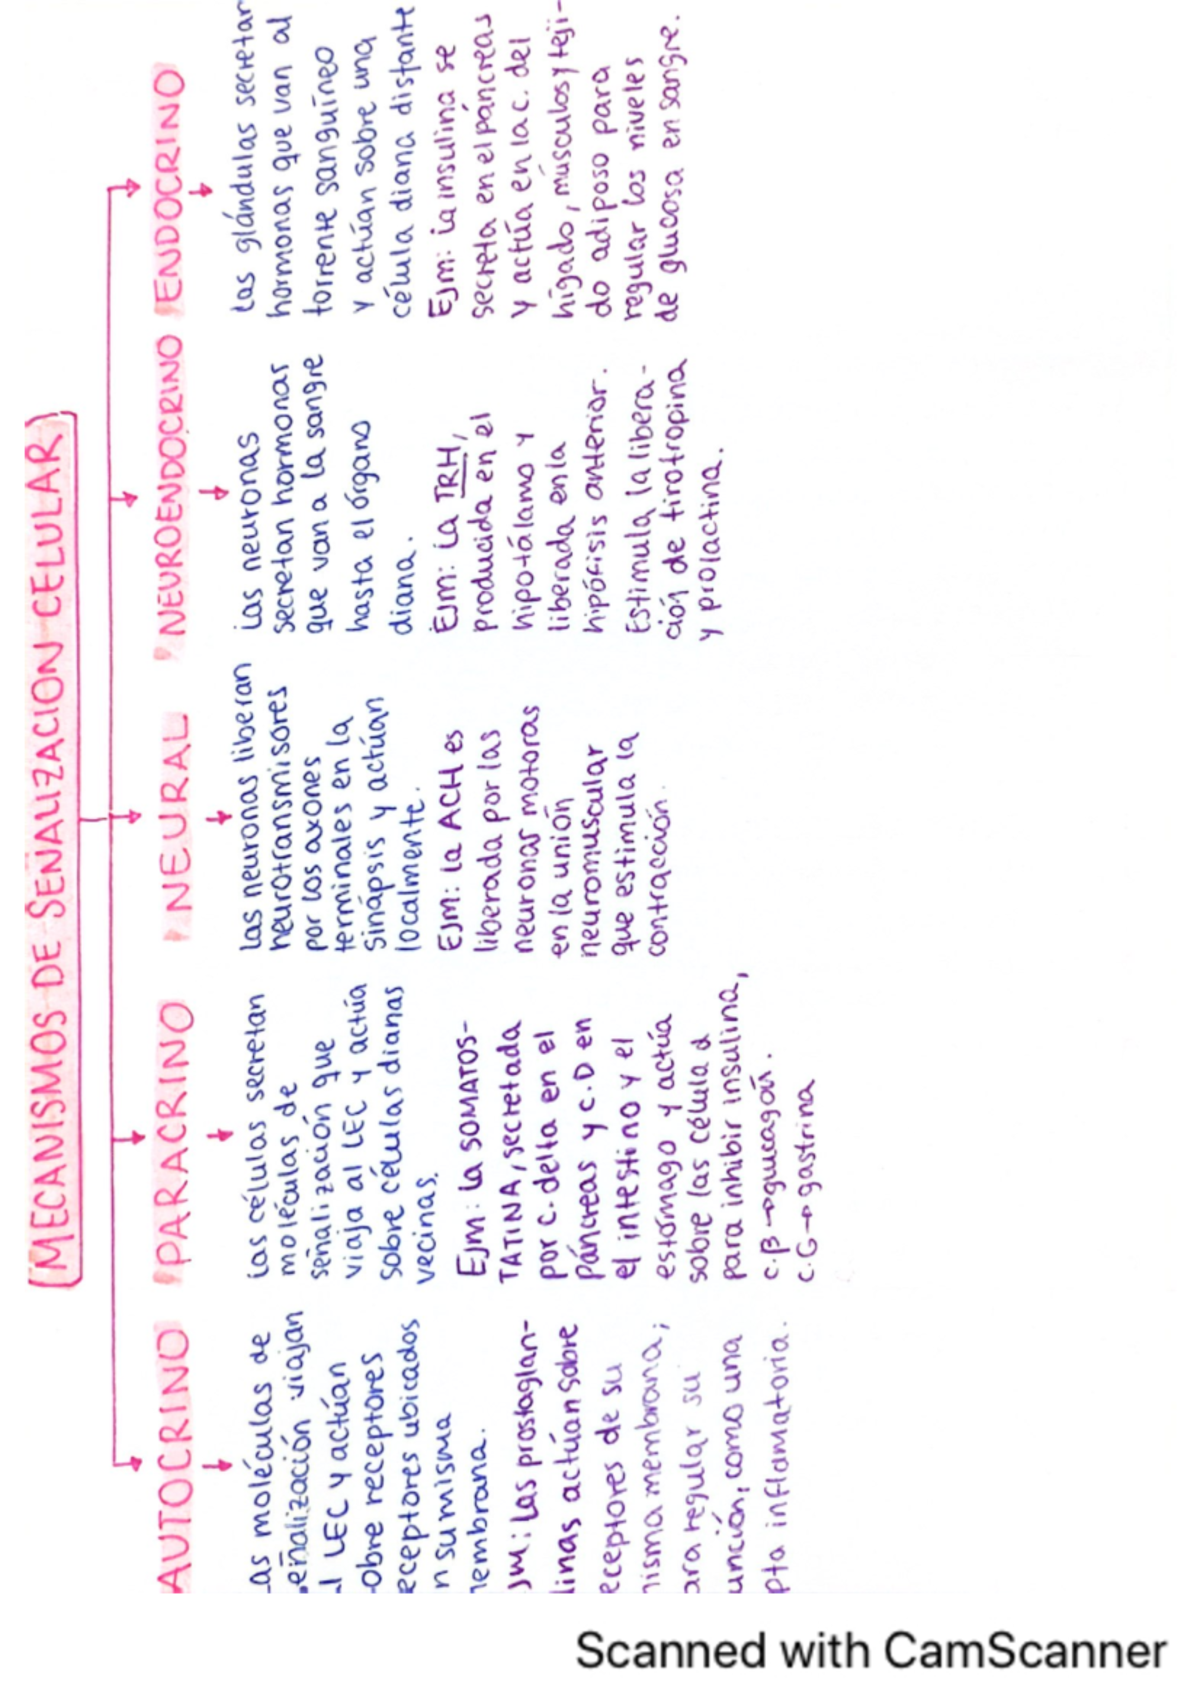 MECANISMOS DE SEÑALIZACION CELULAR
AUTOCRINO
as moléculas de
eñalización viajan
l LEC y actúan
obre receptores
eceptores ubicados
n su misma
embrana.
jm: Las prostaglan-
linas actúan sobre
eceptores de su
misma membrana;
ara regular su
unción, como una
pta inflamatoria.
PARACRINO
Las células secretan
moléculas de
señalización que
viaja al LEC y actúa
sobre células dianas
vecinas.
EJm: La SOMATOS-
TATINA, secretada
por c. delta en el
páncreas y c. D en
el intestino y el
estómago y actúa
sobre las célula α
para inhibir insulina,
c. β → glucagón.
c. G → gastrina
NEURAL
Las neuronas liberan
neurotransmisores
por los axones
terminales en la
sinapsis y actúan
localmente.
EJm: La ACH es
liberada por las
neuronar motoras
en la unión
neuromuscular
que estimula la
contracción.
NEUROENDOCRINO
Las neuronas
secretan hormonar
que van a la sangre
hasta el órgano
diana.
EJm: La TRH,
producida en el
hipotálamo y
liberada en la
hipófisis anterior.
Estimula la libera-
ción de tirotropina
y prolactina.
ENDOCRINO
Las glándulas secretar
hormonas que van al
torrente sanguíneo
y actúan sobre una
célula diana distante
EJm: La insulina se
secreta en el páncreas
y actúa en la c. del
hígado, músculos y teji-
do adiposo para
regular los niveles
de glucosa en sangre.
Scanned with CamScanner